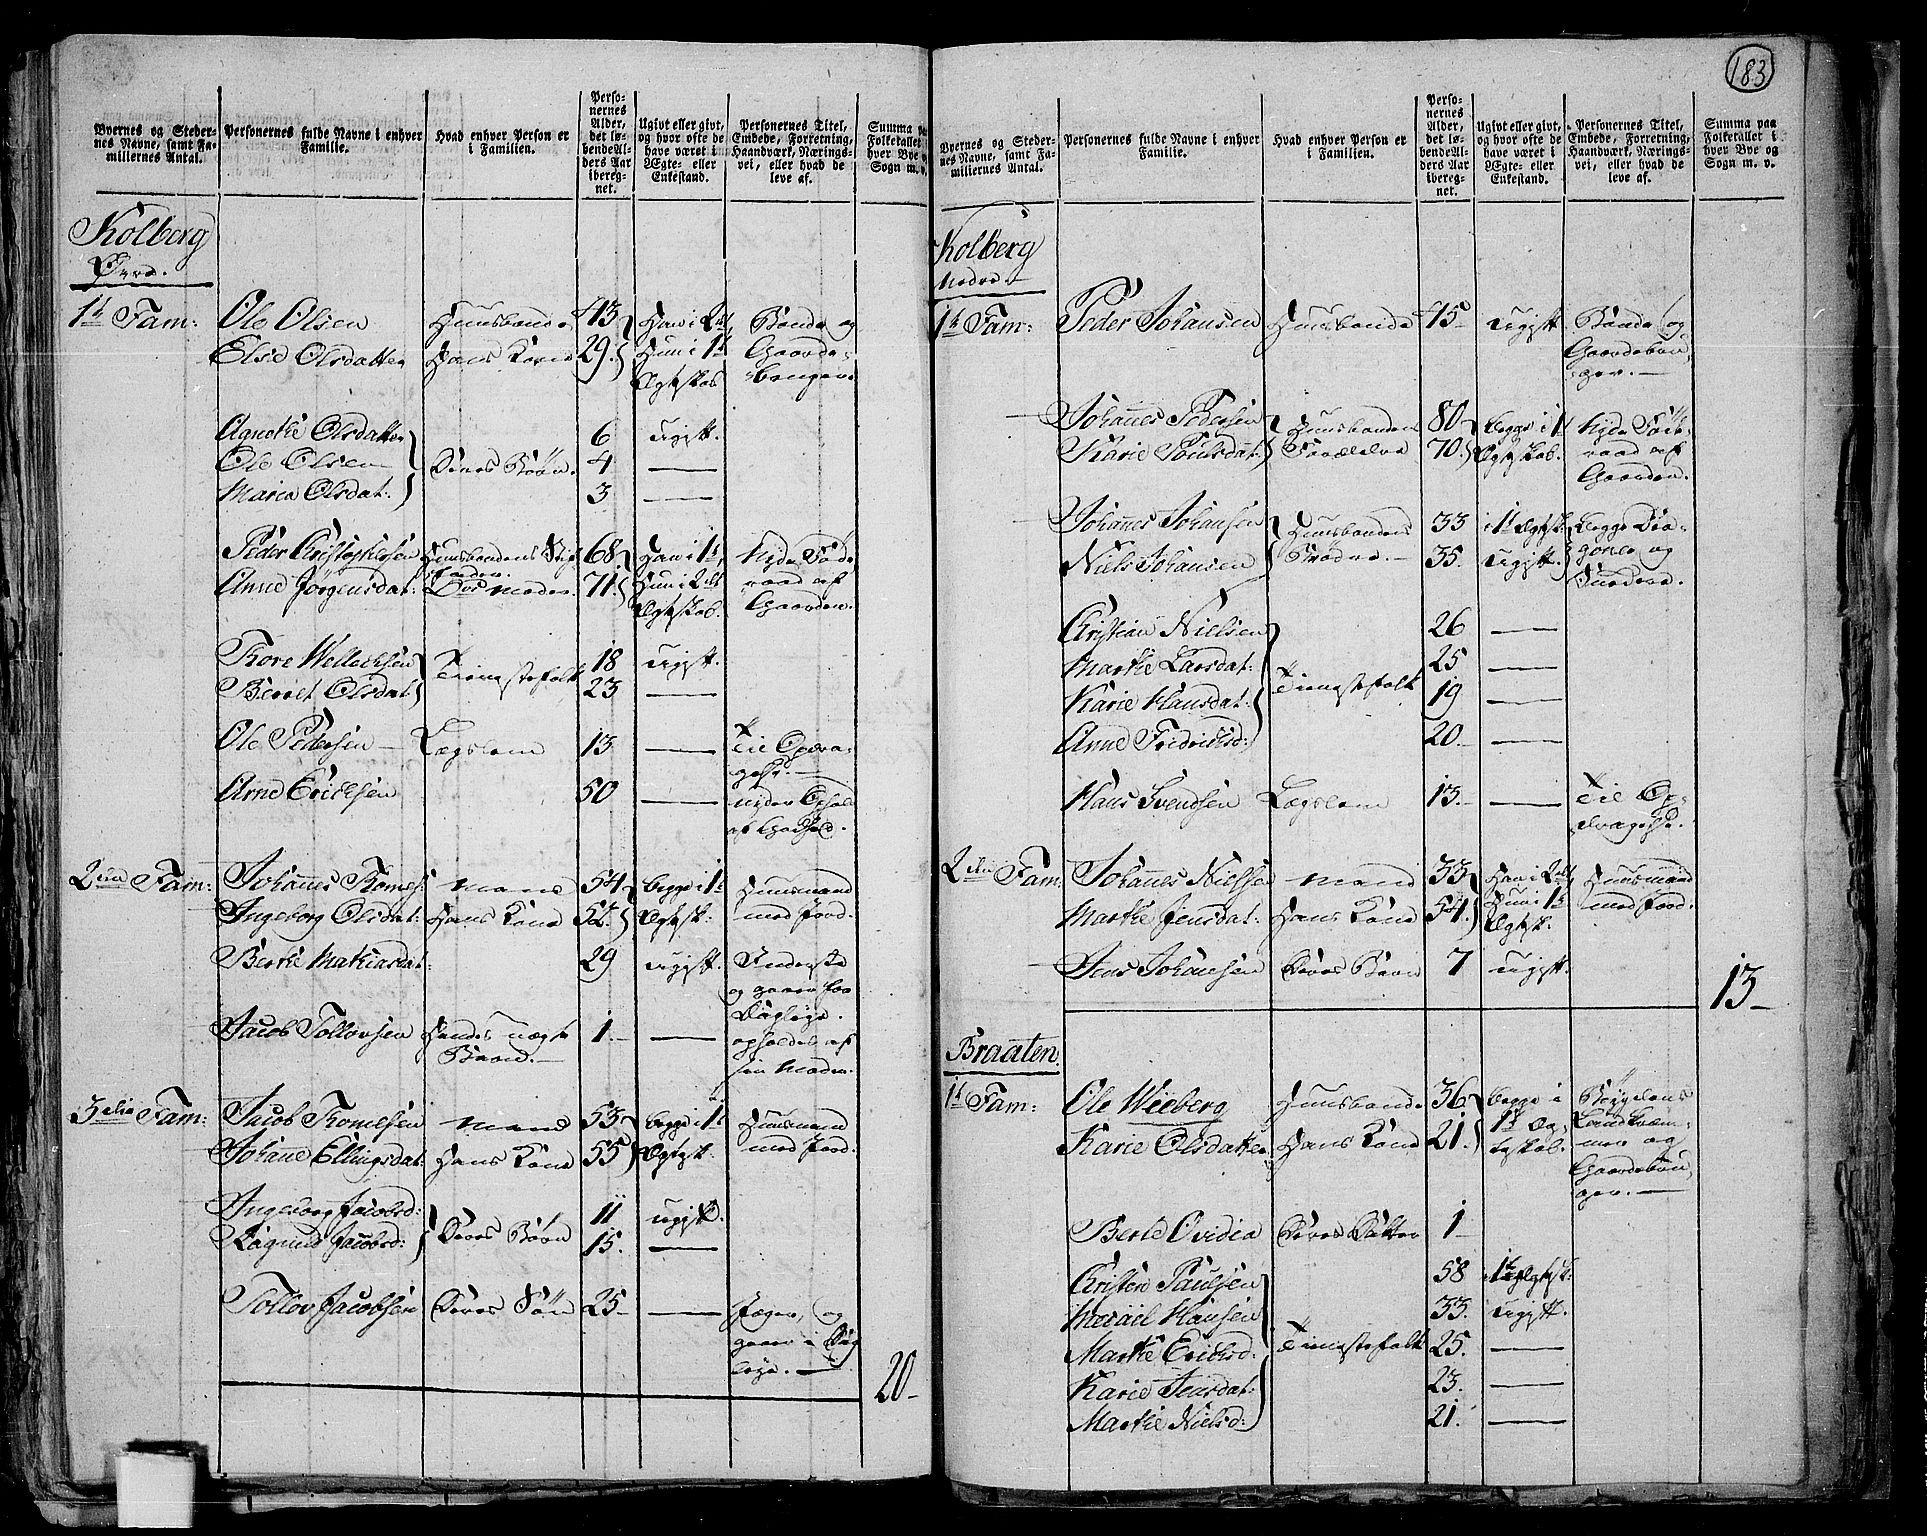 183
Byernes og Stedernes Navne, samt Familiernes Antal. | Personernes fulde Navne i enhver Familie. | Hvad enhver Person er i Familien. | Personernes Alder, det løbende Alders Aar iberegnet. | Ugivt eller givt, og hvor ofte de have været i Ægte- eller Enkestand. | Personernes Titel, Embede, Forretning, Haandværk, Næringsvei, eller hvad de leve af. | Summa paa Folketallet i hver Bye og Sogn m. v.
Kolberg
Øvre.
1te Fam: Ole Olsen Huusbonde 43 Han i 2det Bonde og
Else Olsdatter Hans Kone 29. Hun i 1te Gaarde-
Ægteskab bruger.
Agnethe Olsdatter 6 ugift.
Ole Olsen Deres Børn. 4 —
Maria Olsdat: 3 —
Peder Christophersen Huusbondens Stif- 68. Han i 1te, Nyde Føde-
fader.
Anne Jørgensdat: Do Moder. 71. Hun i 2det raad af
Ægteskab. Gaarden.
Thore Wellechsen Tienestefolk 18 ugift.
Berret Olsdat: 23 —
Ole Pedersen — Lægslem 13 — Til Opdra-
gelse. —
Arne Ericksen 50 — nyder Ophold
af Godhed.
2den Fam: Johannes Thomes: Mand 54 begge i 1te Huusmand
Ingeborg Olsdat: Hans Kone 54. Ægtesk: med Jord.
Berthe Mathiasdat: 29 ugift. Inderste
og gaaer for
Dagleje.
Jacob Tollovsen Hendes uægte 1. — opholdes af
Barn. — sin Moder.
3die Fam: Jacob Thomesen Mand 53 begge i 1te Huusmand
Johanne Ellingsdat: Hans Kone 55 Ægtesk. med Jord.
Ingeborg Jacobsd: Deres Børn 11 ugift.
Ragnild Jacobsd: 15. —
Tollov Jacobsen Deres Søn 25 — Jæger, og
gaaer i Dag
leje. —
20
Byernes og Stedernes Navne, samt Familiernes Antal. | Personernes fulde Navne i enhver Familie. | Hvad enhver Person er i Familien. | Personernes Alder, det løbende Alders Aar iberegnet. | Ugivt eller givt, og hvor ofte de have været i Ægte- eller Enkestand. | Personernes Titel, Embede, Forretning, Haandværk, Næringsvei, eller hvad de leve af. | Summa paa Folketallet i hver Bye og Sogn m. v.
Kolberg
Nedre.
1te Fam: Peder Johansen Huusbonde 45 ugift Bonde og
Gaardebru-
ger. —
Johannes Pedersen Huusbondens 80 begge i 1te Nyde Føde-
Karie Poulsdat: Forældre 70. Ægteskab. raad af
Gaarden.
Johannes Johansen Huusbondens 33 i 1te Ægtesk: begge Dra-
Niels Johansen Brødre. — 35. ugift. goner og
Snedkere.
Christian Nielsen 26 —
Marthe Larsdat: Tienestefolk 25 —
Karie Hansdat: 19 —
Anne Fridrichsd: 20. —
Hans Svendsen Lægslem 13. — Til Op-
dragelse.
2den Fam: Johannes Nielsen Mand 33 Han i 2det Huusmand
Marthe Jensdat: Hans Kone 54. Hun i 1te med Jord.
Ægtesk.
Jens Johansen Deres Barn 7 ugift.
13
Braaten.
1te Fam: Ole Wieberg Huusbonde 36 begge i Bøygdens
Karie Olsdatter Hans Kone 21. 1te Æg- Landkræm-
teskab. mer og
Gaardebru-
ger. —
Berte Ovidia Deres Datter 1
Christen Paulsen 58 1te Ægtesk:
Michael Hansen 33. ugift.
Marthe Ericksd: Tienestefolk 25. —
Karie Jensdat: 23. —
Marthe Nielsd: 21. —